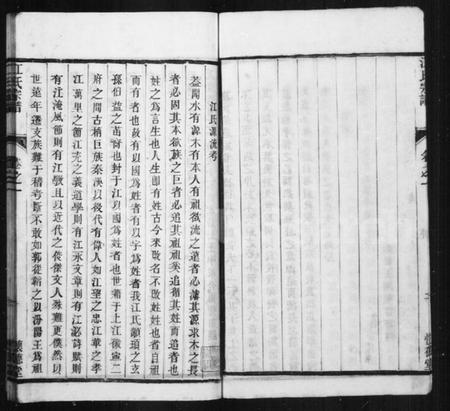 江氏源流考
蓋聞水有源木有本人有祖欲流之遠者必濬其源求木之長
者必固其本欲族之巨者必追其祖祖奚追循其姓而追者也
姓之為言生也人生即有姓古今來改名不改姓姓也者自祖
而有者也故有以國為姓者有以字為姓者我江氏顓頊之玄
孫伯益之苗裔也封于江以國為姓者也世籍于上江徽寧二
府之間古稱巨族秦漢以後代有偉人如江革之忠江華之孝
江萬里之節江充之義道學則有江永文章則有江泌詩賦則
有江淹風節則有江斅且以近代之俊傑文人殊難更僕然以
世遠年遷支族難于稽考斷不敢如郭從韜之以汾陽王為祖
江氏宗譜
卷之一
懷德堂
江氏宗譜
卷之一
懷德堂